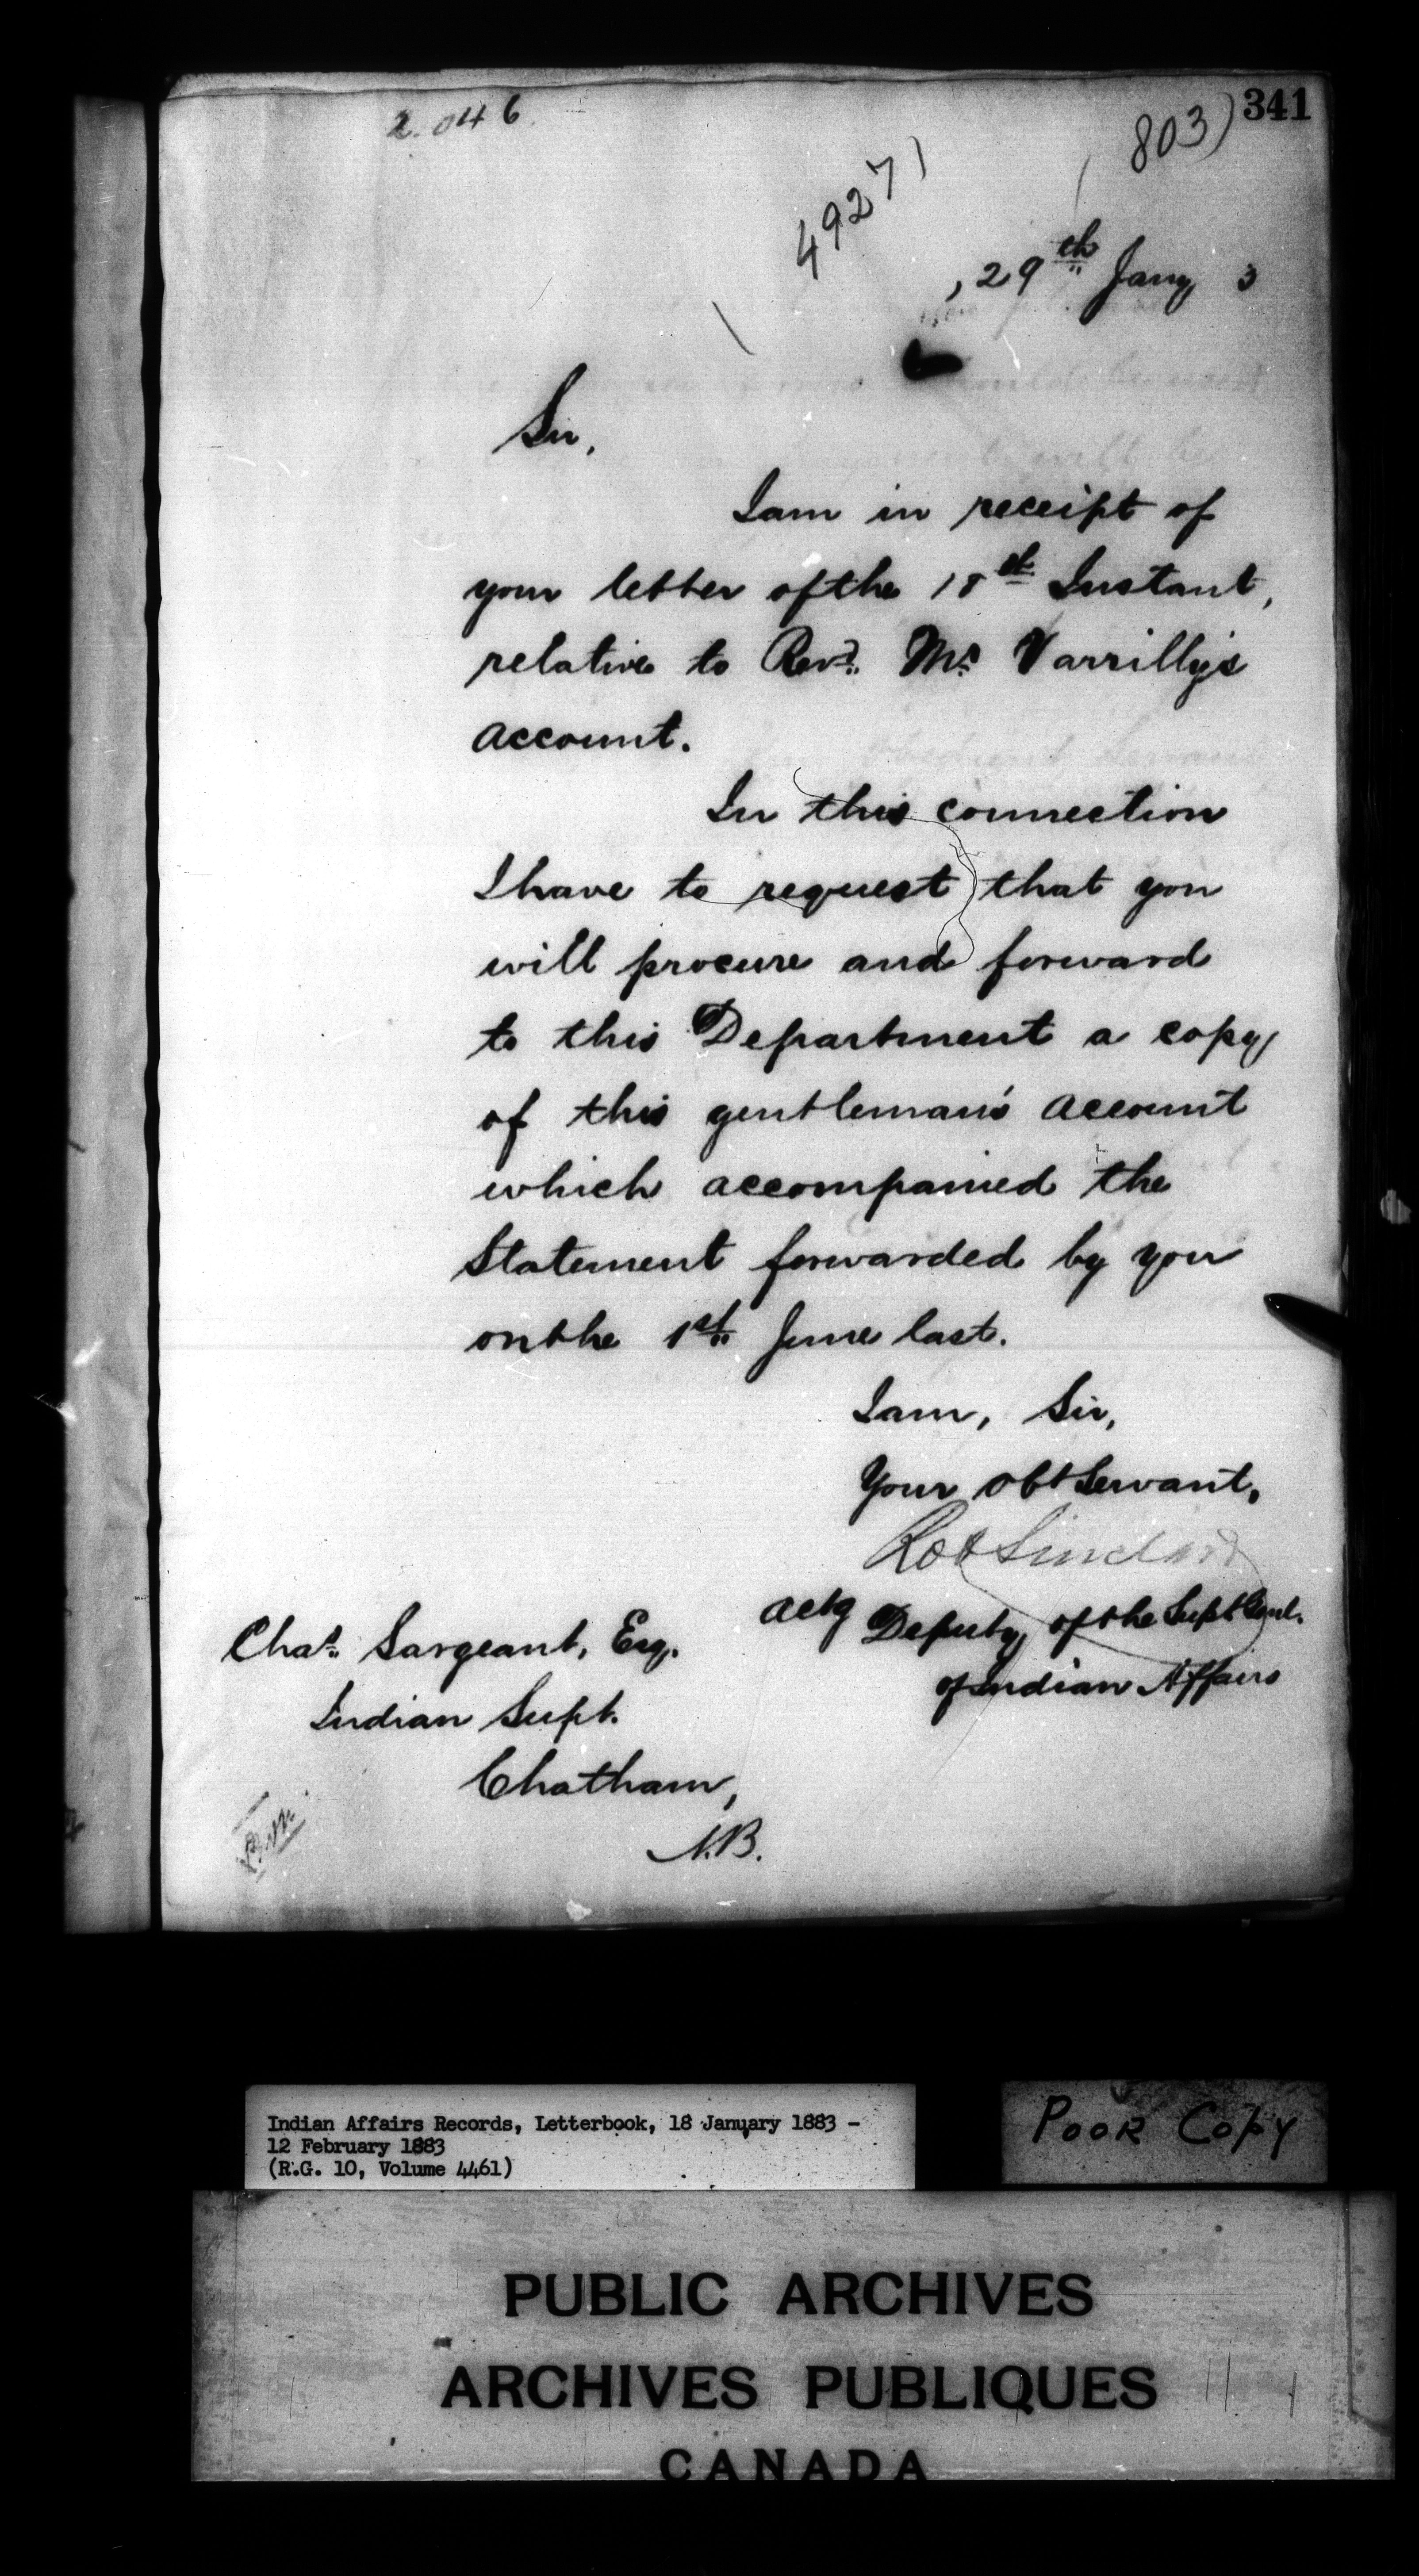 341
2.046
(803)
49271
, 29th Jany 3
Sir,
I am in receipt of
your letter of the 18th Instant,
relative to Revd. Mr. Varrilly's
account.
In this connection
I have to request that you
will procure and forward
to this Department a copy
of this gentleman's account
which accompanied the
Statement forwarded by you
on the 1st June last.
I am, Sir,
Your obt Servant,
Rob Sinclair
actg Deputy of the Supt Genl.
of Indian Affairs
Chas. Sargeant, Esq.
Indian Supt.
Chatham,
N.B.
Indian Affairs Records, Letterbook, 18 January 1883 -
12 February 1883
(R.G. 10, Volume 4461)
POOR COPY
PUBLIC ARCHIVES
ARCHIVES PUBLIQUES
CANADA